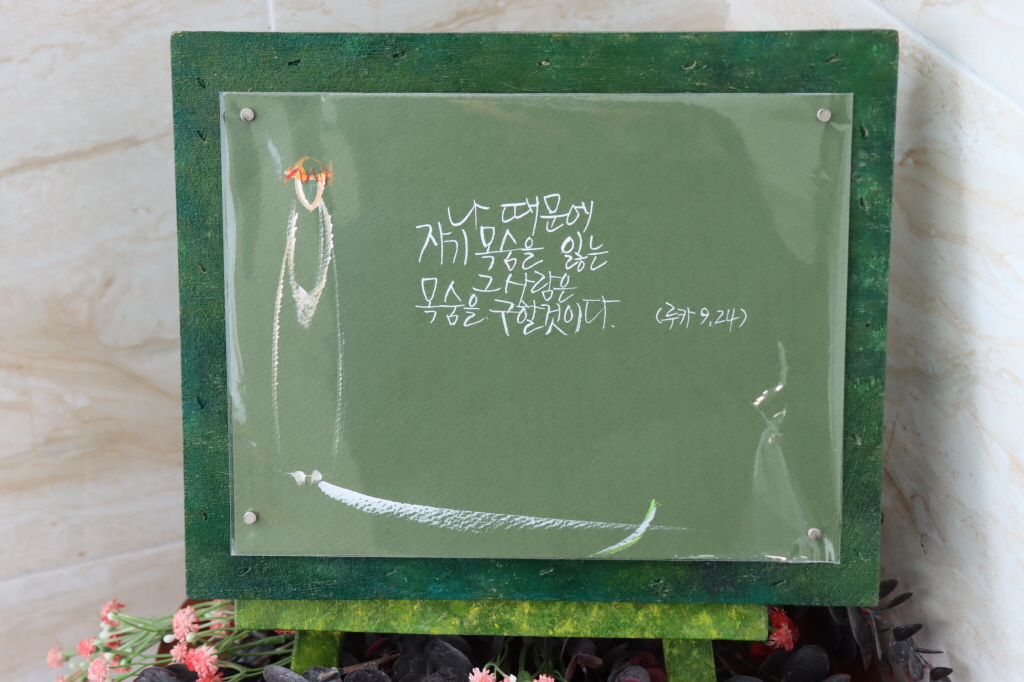 나 때문에
자기 목숨을 잃는
그 사람은
목숨을 구할것이다. (루카 9,24)